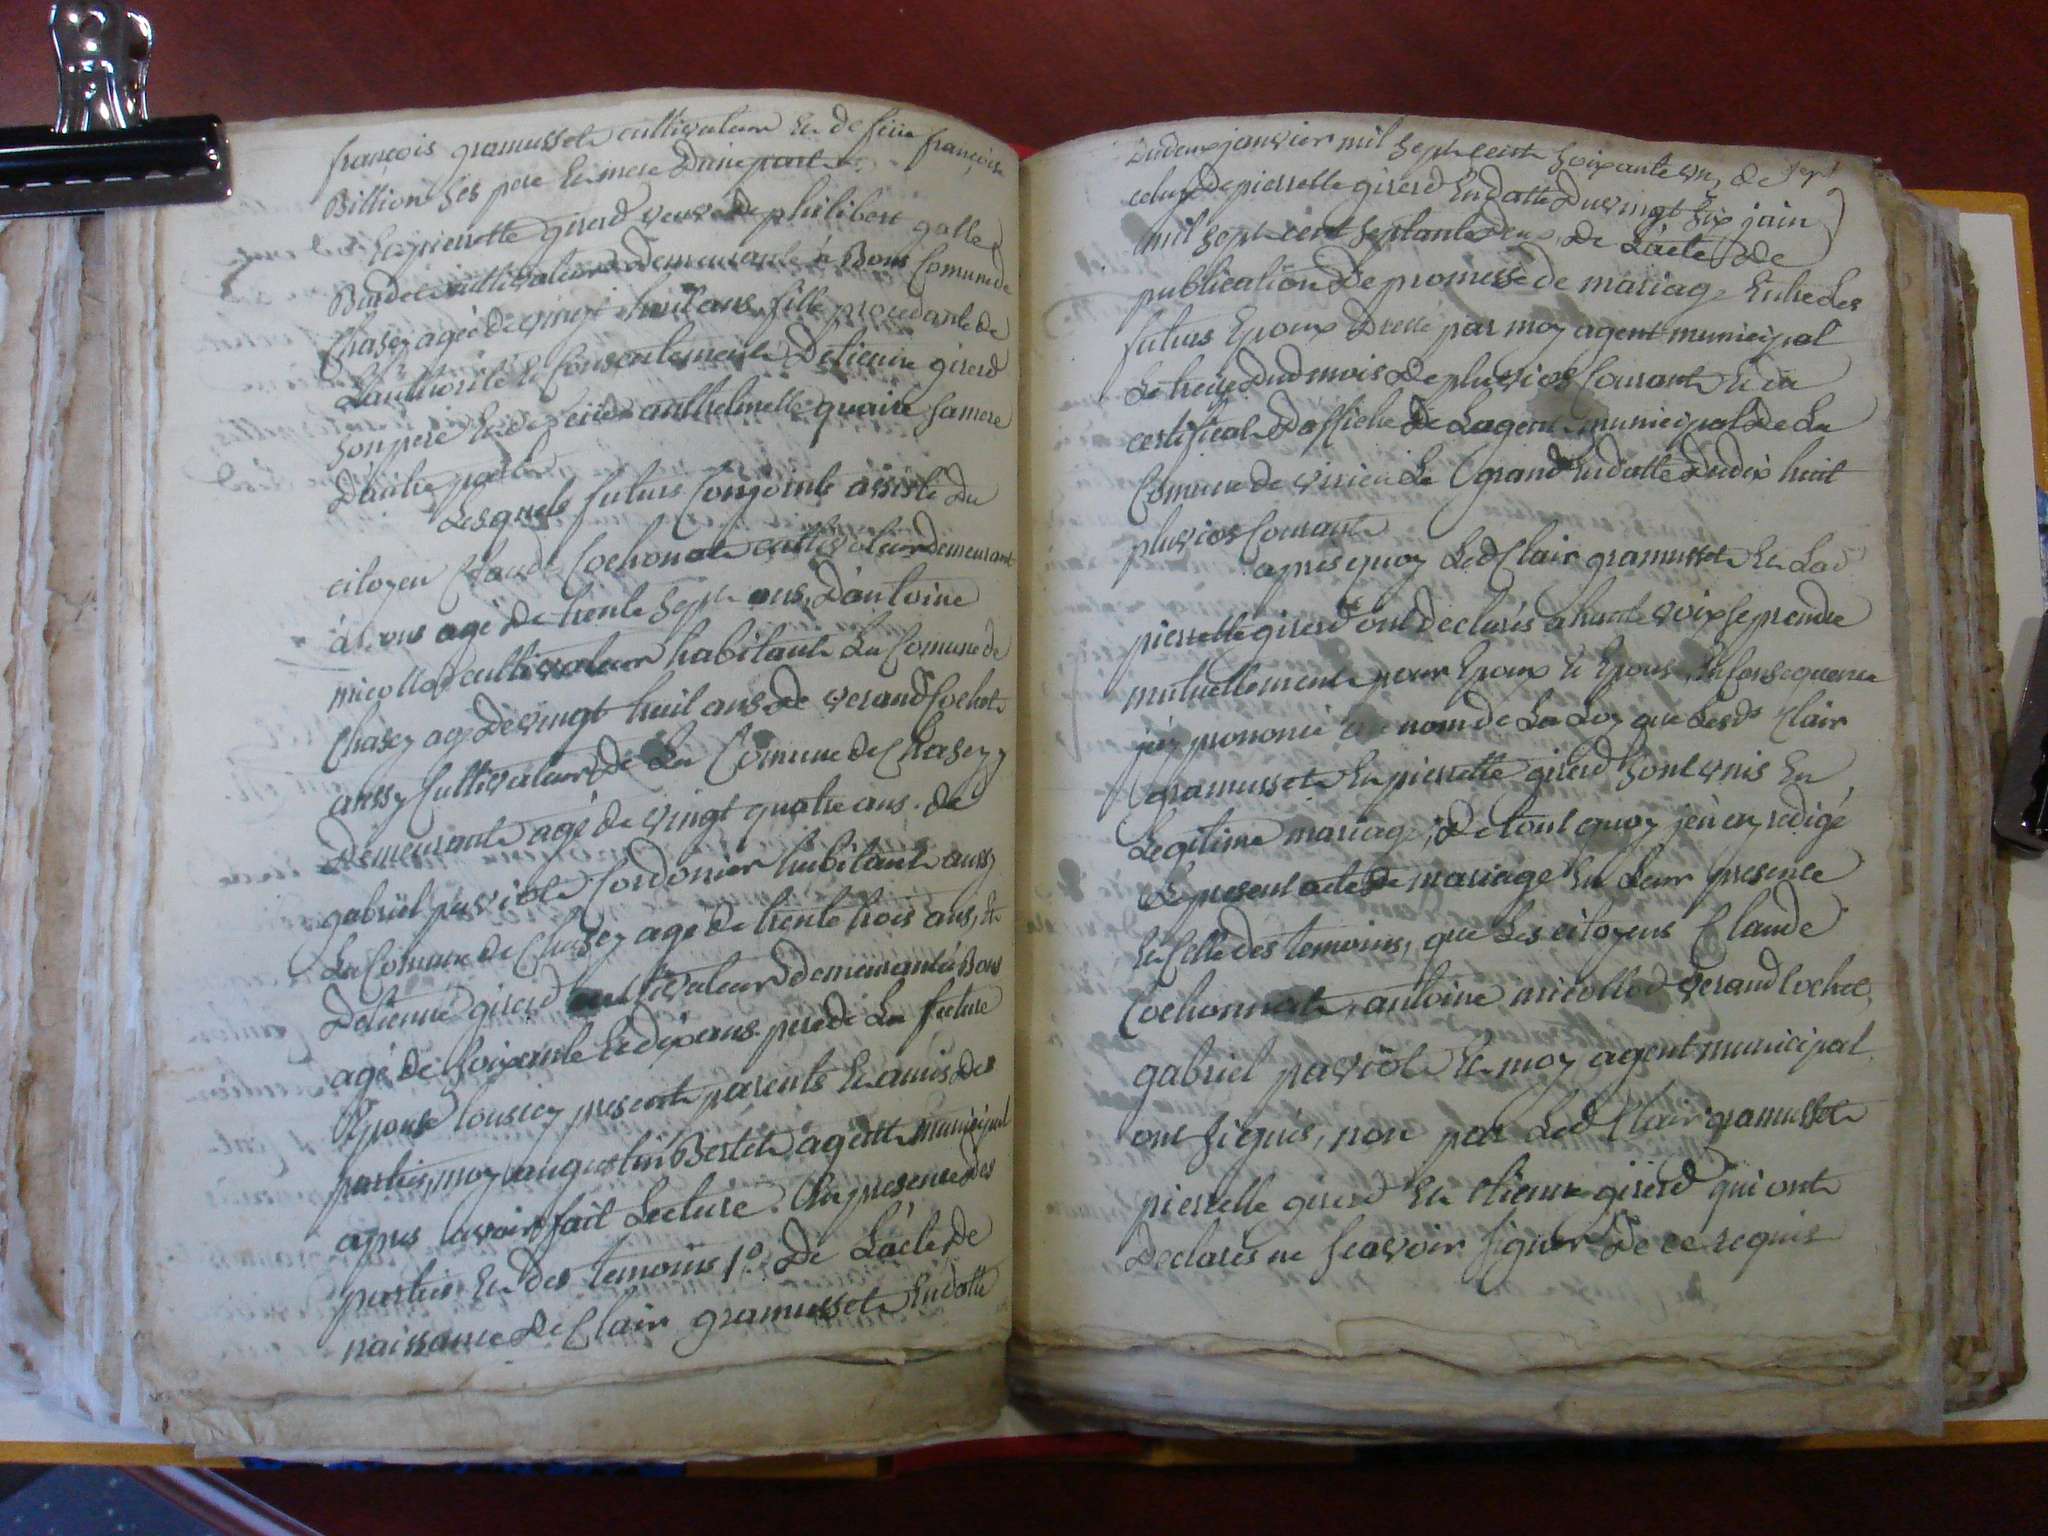 françois gramusset cultivateur et de feüe françoise
Billion ses pere et mere D'une part
Et pierrette girerd veuve de philibert galle
Bardet cultivateur Demeurante à Bons Comune de
Chasey agée de vingt huit ans, fille procedante de
L'authorité et Consentement D'etienne girerd
son pere et de feüe anthelmette quaire sa mere
D'autre part
Lesquels futurs Conjoints assisté du
citoyen Claude Cochonat cultivateur demeurant
à Bons agé de trente sept ans, D'antoine
micollod cultivateur habitant La Comune de
Chasey agé De vingt huit ans De verand Cochet
aussy Cultivateur de La Comune de Chasey y
Demeurant agé de vingt quatre ans. de
gabriel paviot Cordonier habitant aussy
La Comune de Chasey agé de trente trois ans, et
D'etienne girerd cultivateur demeurant à Bons
agé de soixante et dix ans pere de La future
Epouse tous icy present parents et amis des
parties, moy augustin Bertet agent municipal
apres avoir fait Lecture En presence des
parties et des temoins 1º De L'acte de
naissance de Clair gramusset En datte
Du deux janvier mil sept cent soixante un, de sept
celuy de pierrette girerd En datte Du vingt six juin
mil sept cent septante deux, De L'acte de
publication De promesse de mariage Entre Les
futurs Epoux Dressé par moy agent municipal
Le treize Dud mois De pluvios Courant Et du
certificat D'affiche de Lagent municipal de La
Comune de virieu Le grand En datte Dudix huit
pluvios Courant
apres quoy Led Clair gramusset Et Lad
pierrette girerd ont declarés à haute voix se prendre
mutuellement pour Epoux Et Epouse, En Consequence
jéy prononcé au nom de La Loy que Lesds Clair
gramusset Et pierrette girerd sont unis En
Legitime mariage, De tout quoy jéü ay redigé
Le present acte de mariage En Leur presence
Et Celle des temoins, que Les citoyens Claude
Cochonnat, antoine micollod verand Cochet,
gabriel paviot Et moy agent municipal
ont signés, non par Led Clair gramusset
pierrette girerd Et Etienne girerd qui ont
Declarés ne sçavoir signer De ce requis